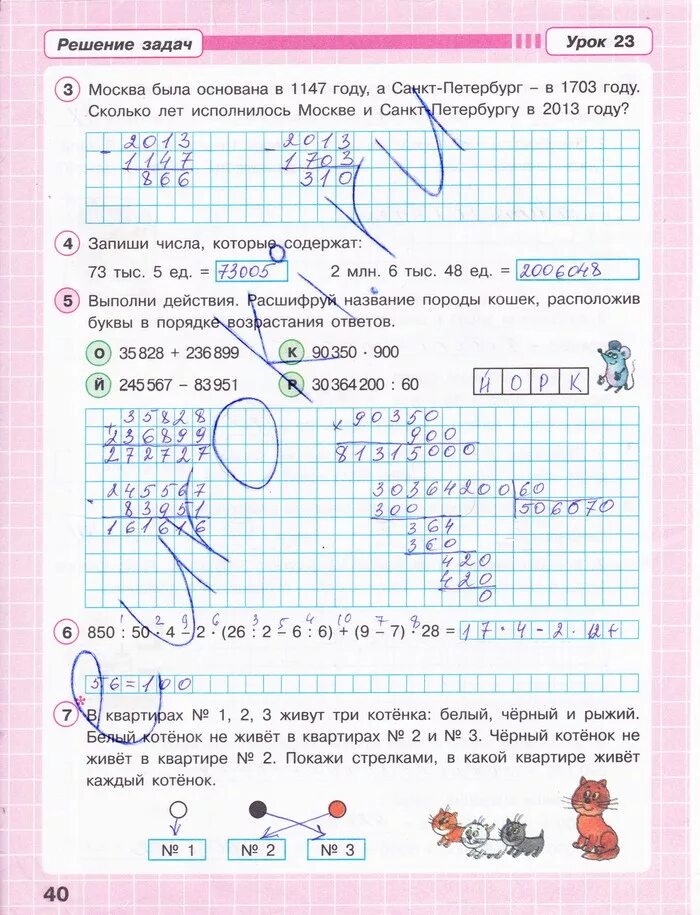 Решение задач
Урок 23
3 Москва была основана в 1147 году, а Санкт-Петербург – в 1703 году.
Сколько лет исполнилось Москве и Санкт-Петербургу в 2013 году?
- 2013 - 2013
1147 1703
866 310
4 Запиши числа, которые содержат:
73 тыс. 5 ед. = 73005 2 млн. 6 тыс. 48 ед. = 2006048
5 Выполни действия. Расшифруй название породы кошек, расположив
буквы в порядке возрастания ответов.
О 35 828 + 236 899 К 90 350 · 900
Й 245 567 – 83 951 Р 30 364 200 : 60
Й О Р К
+ 35828 × 90350
236899 900
272727 81315000
- 245567 30364200 60
83951 300 506070
161616 364
360
420
420
0
1 2 9 6 3 5 4 10 7 8
6 850 : 50 · 4 – 2 · (26 : 2 – 6 : 6) + (9 – 7) · 28 = 17·4-2·12+
56=100
7 В квартирах № 1, 2, 3 живут три котёнка: белый, чёрный и рыжий.
Белый котёнок не живёт в квартирах № 2 и № 3. Чёрный котёнок не
живёт в квартире № 2. Покажи стрелками, в какой квартире живёт
каждый котёнок.
№ 1 № 2 № 3
40